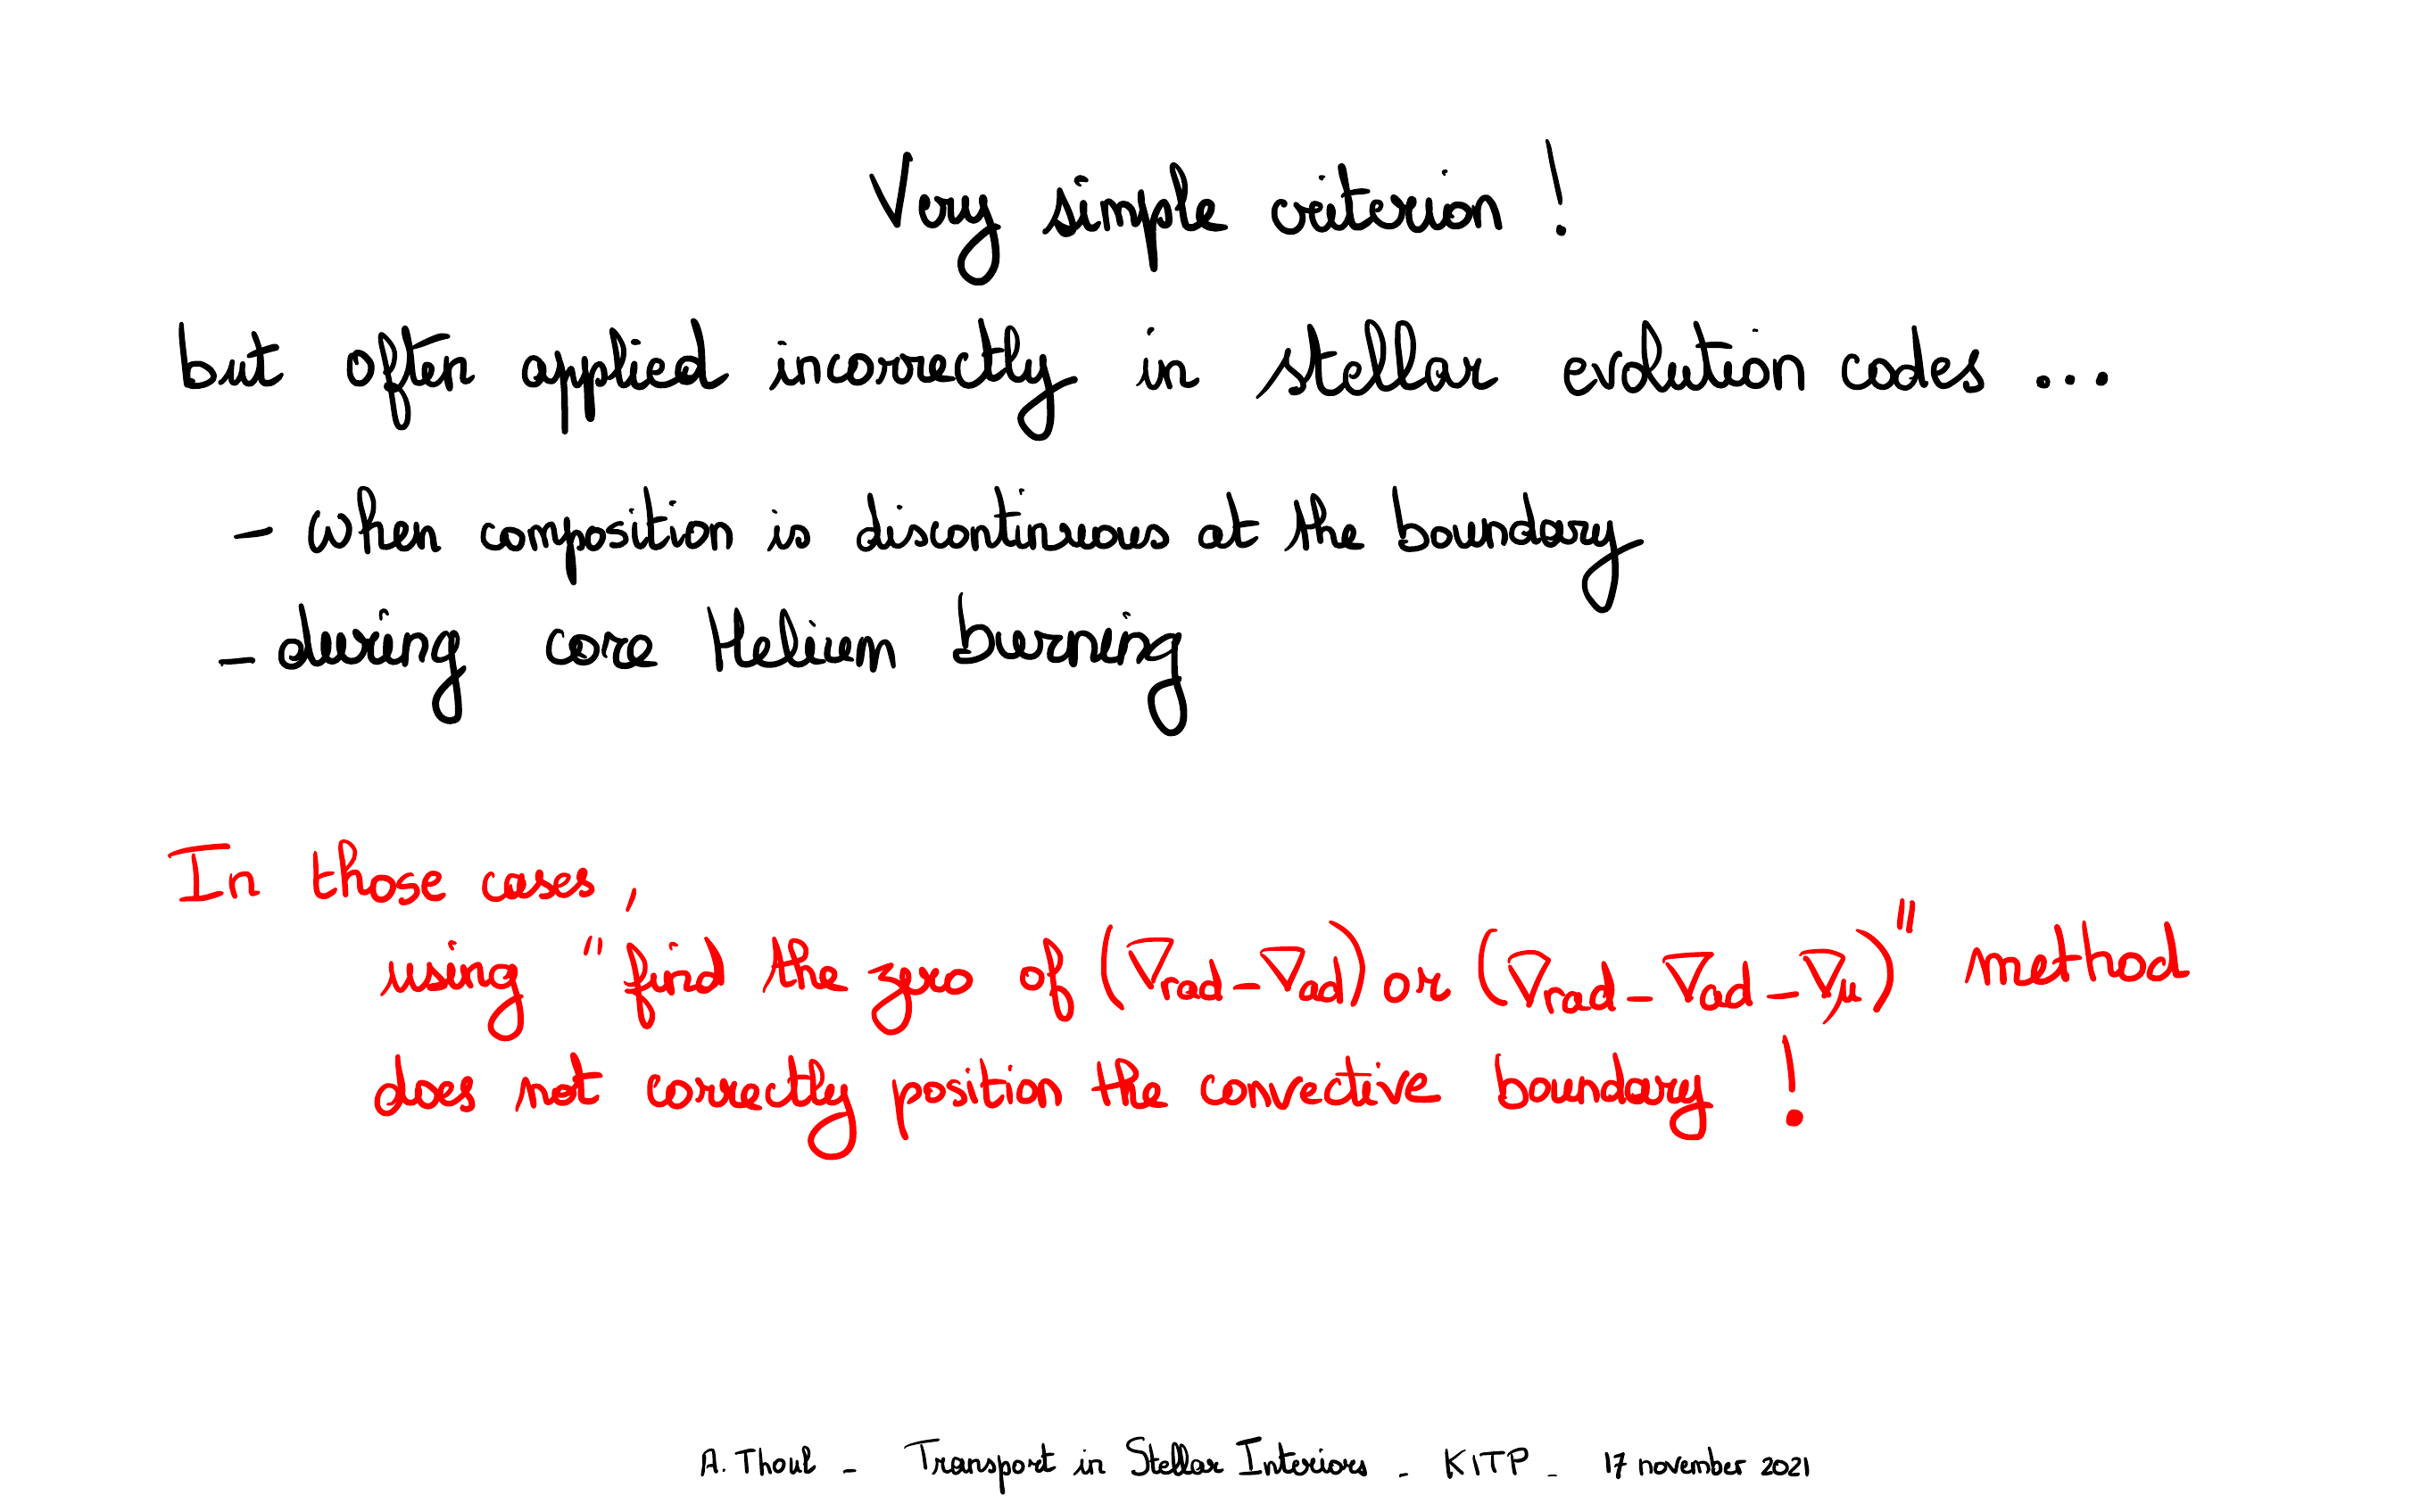 Very simple criterion !
but often applied incorrectly in stellar evolution codes ...
- when composition is discontinuous at the boundary
- during core Helium burning
In those cases,
using "find the zero of (∇rad - ∇ad) or (∇rad - ∇ad - ∇μ)" method
does not correctly position the convective boundary !
A. Thoul - Transport in Stellar Interiors - KITP - 17 november 2021